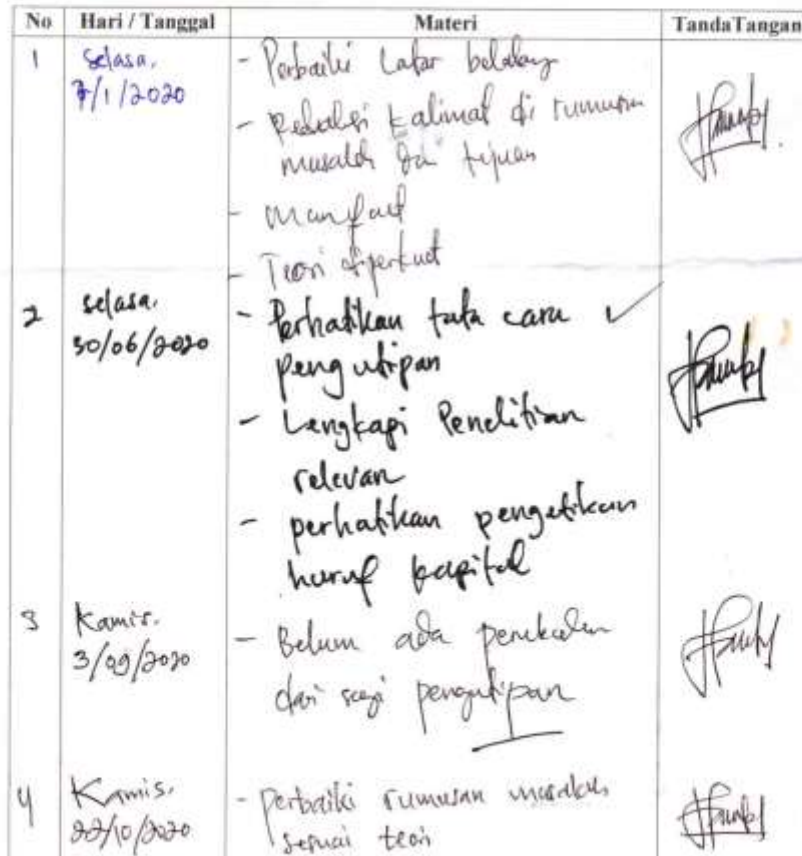 No Hari / Tanggal Materi TandaTangan
1 Selasa, - Perbaiki Latar belakang
7/1/2020 - Redaksi kalimat di rumusan
masalah dan tujuan
- Manfaat
- Teori diperkuat
2 selasa, - Perhatikan tata cara ✓
30/06/2020 pengutipan
- Lengkapi Penelitian
relevan
- perhatikan pengetikan
huruf kapital
3 Kamis, - Belum ada
3/09/2020 dari segi pengutipan
4 Kamis, - perbaiki rumusan masalah
22/10/2020 sesuai teori